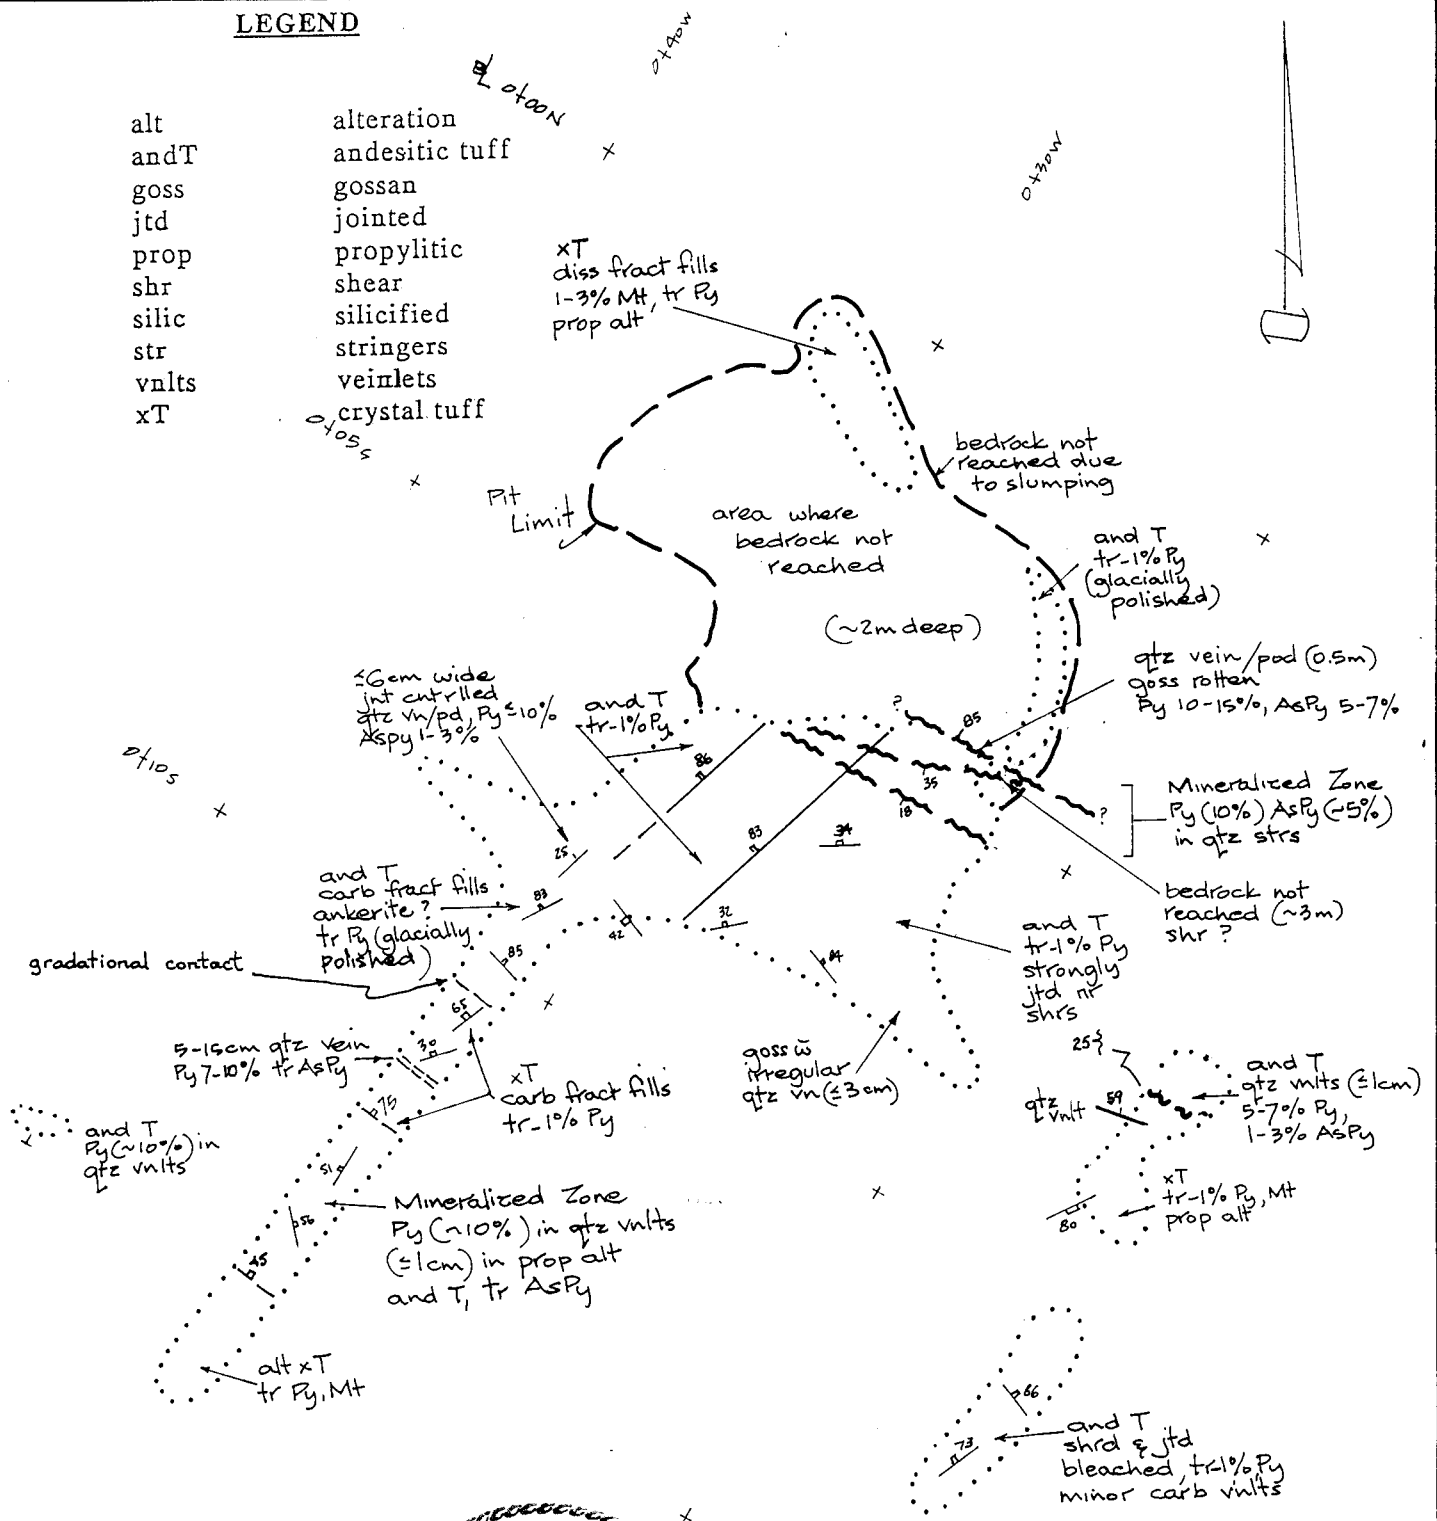 LEGEND
alt alteration
andT andesitic tuff
goss gossan
jtd jointed
prop propylitic
shr shear
silic silicified
str stringers
vnlts veinlets
xT crystal tuff
0+00N
0+40W
0+30W
0+05S
0+10S
xT
diss fract fills
1-3% Mt, tr Py
prop alt
Pit
Limit
area where
bedrock not
reached
(~2m deep)
bedrock not
reached due
to slumping
and T
tr-1% Py
(glacially
polished)
qtz vein/pod (0.5m)
goss rotten
Py 10-15%, AsPy 5-7%
≤6cm wide
jnt cntrlled
qtz vn/pd, Py ≤10%
Aspy 1-3%
and T
tr-1% Py
?
85
86
35
18
?
Mineralized Zone
Py (10%) AsPy (~5%)
in qtz strs
83
34
25
bedrock not
reached (~3m)
shr ?
and T
carb fract fills
ankerite ?
tr Py (glacially
polished)
83
42
32
84
85
and T
tr-1% Py
strongly
jtd nr
shrs
gradational contact
65
30
5-15cm qtz vein
Py 7-10% tr AsPy
xT
carb fract fills
tr-1% Py
goss w̄
irregular
qtz vn (≤3cm)
25
qtz
vnlt
59
and T
qtz vnlts (≤1cm)
5-7% Py,
1-3% AsPy
75
and T
Py (~10%) in
qtz vnlts
51
56
45
Mineralized Zone
Py (~10%) in qtz vnlts
(≤1cm) in prop alt
and T, tr AsPy
xT
tr-1% Py, Mt
prop alt
80
alt xT
tr Py, Mt
66
73
and T
shrd & jtd
bleached, tr-1% Py
minor carb vnlts